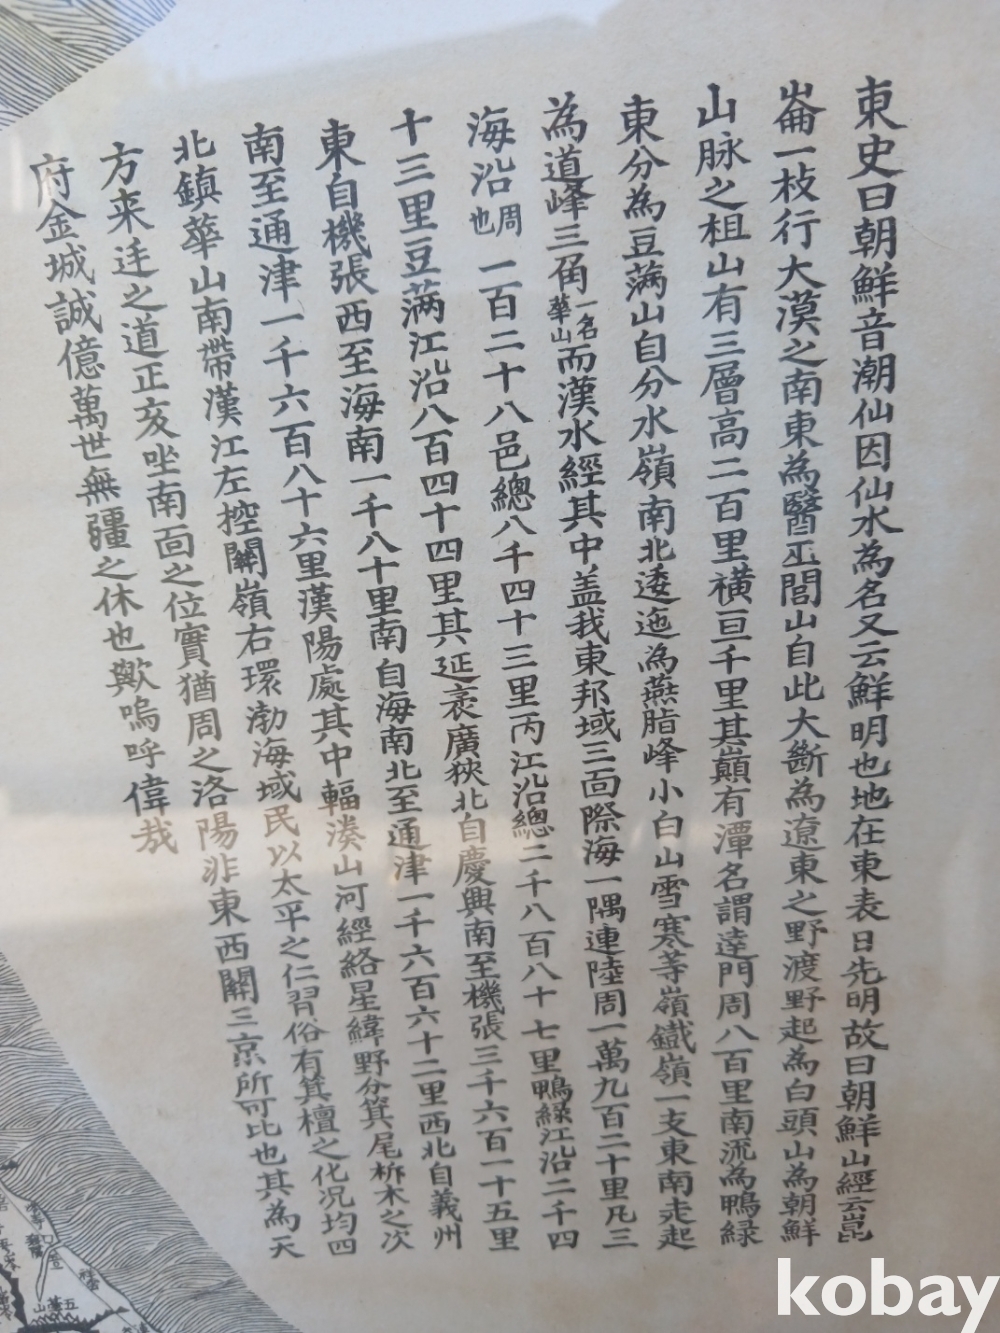 東史曰朝鮮音潮仙因仙水為名又云鮮明也地在東表日先明故曰朝鮮山經云崑
崙一枝行大漠之南東為醫巫閭山自此大斷為遼東之野渡野起為白頭山為朝鮮
山脉之祖山有三層高二百里橫亘千里其巔有潭名謂達門周八百里南流為鴨綠
東分為豆滿山自分水嶺南北逶迤為燕脂峰小白山雪寒等嶺鐵嶺一支東南走起
為道峰三角一名華山而漢水經其中盖我東邦域三面際海一隅連陸周一萬九百二十里凡三
海沿周也一百二十八邑總八千四十三里丙江沿總二千八百八十七里鴨綠江沿二千四
十三里豆满江沿八百四十四里其延袤廣狹北自慶興南至機張三千六百一十五里
東自機張西至海南一千八十里南自海南北至通津一千六百六十二里西北自義州
南至通津一千六百八十六里漢陽處其中輻湊山河經絡星緯野分箕尾析木之次
北鎮華山南帶漢江左控關嶺右環渤海域民以太平之仁習俗有箕檀之化况均四
方来𨒪之道正亥坐南面之位實猶周之洛陽非東西關三京所可比也其為天
府金城誠億萬世無疆之休也歟嗚呼偉哉
五臺山
kobay